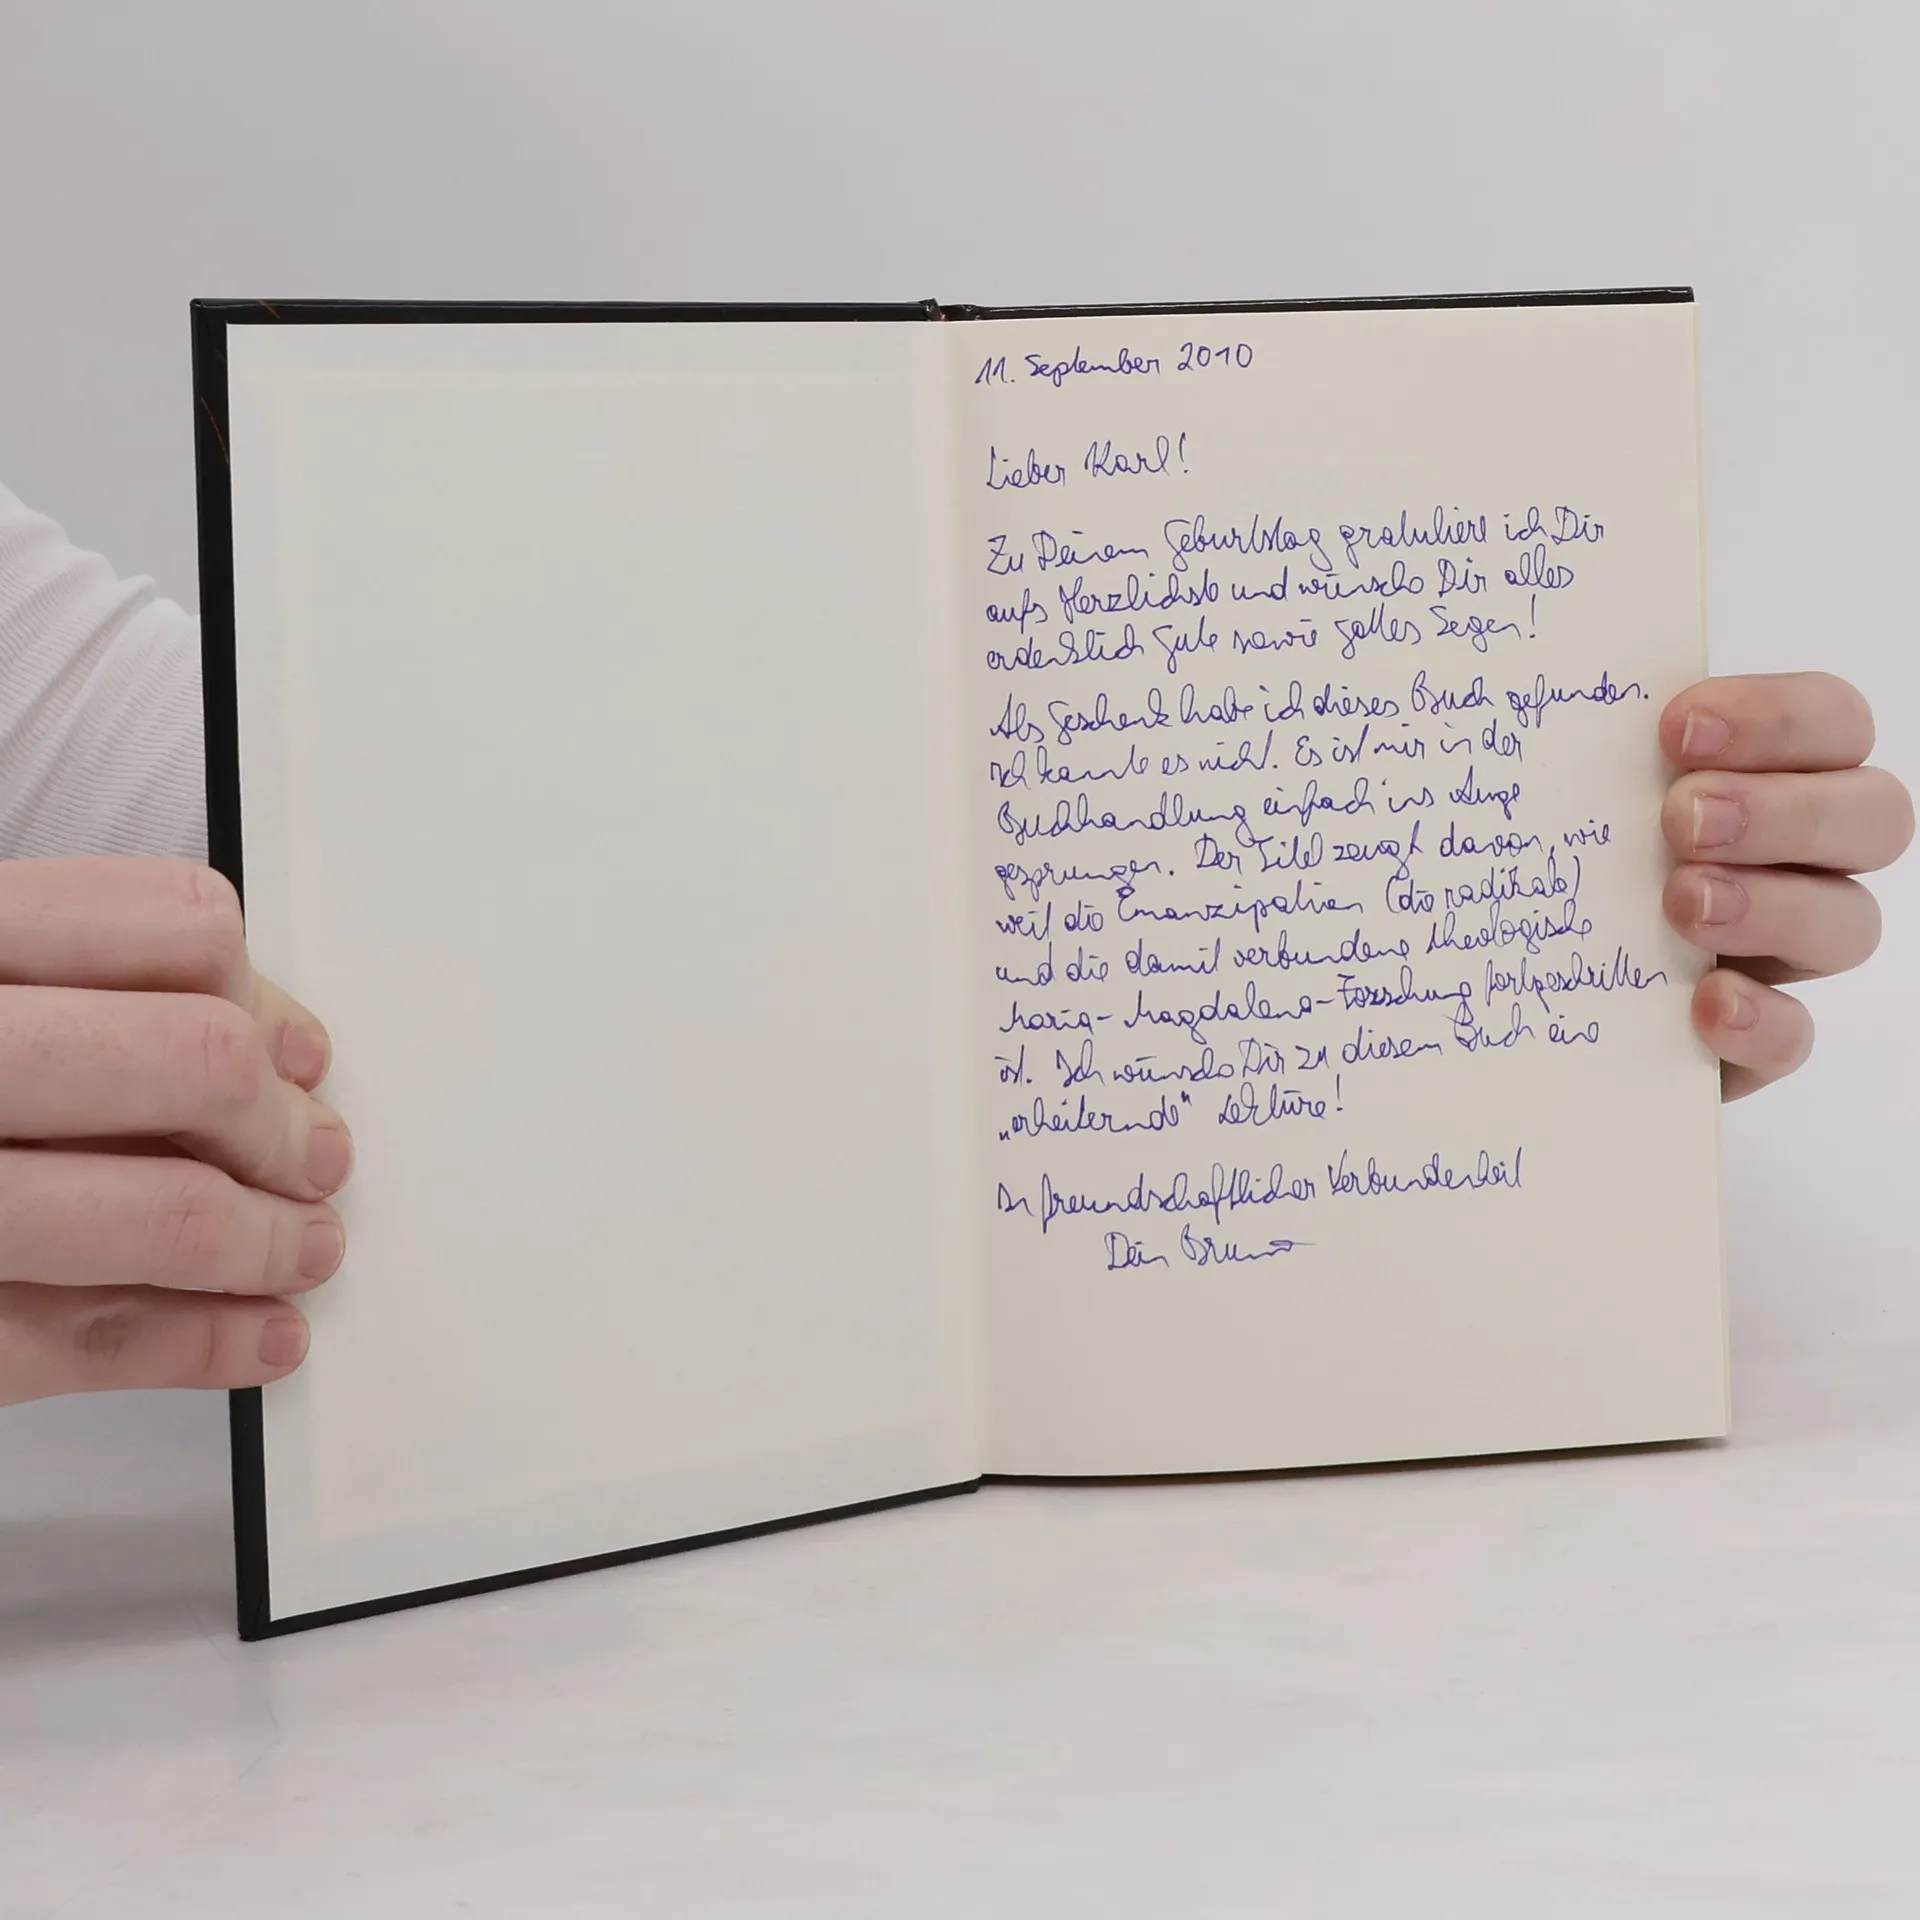 11. September 2010
Lieber Karl!
Zu Deinem Geburtstag gratuliere ich Dir
aufs Herzlichste und wünsche Dir alles
erdenklich Gute sowie Gottes Segen!
Als Geschenk habe ich dieses Buch gefunden.
Ich kannte es nicht. Es ist mir in der
Buchhandlung einfach ins Auge
gesprungen. Der Titel zeugt davon, wie
weit die Emanzipation (die radikale)
und die damit verbundene theologische
Maria-Magdalena-Forschung fortgeschritten
ist. Ich wünsche Dir zu diesem Buch eine
„erheiternde" Lektüre!
In freundschaftlicher Verbundenheit
Dein Bruno